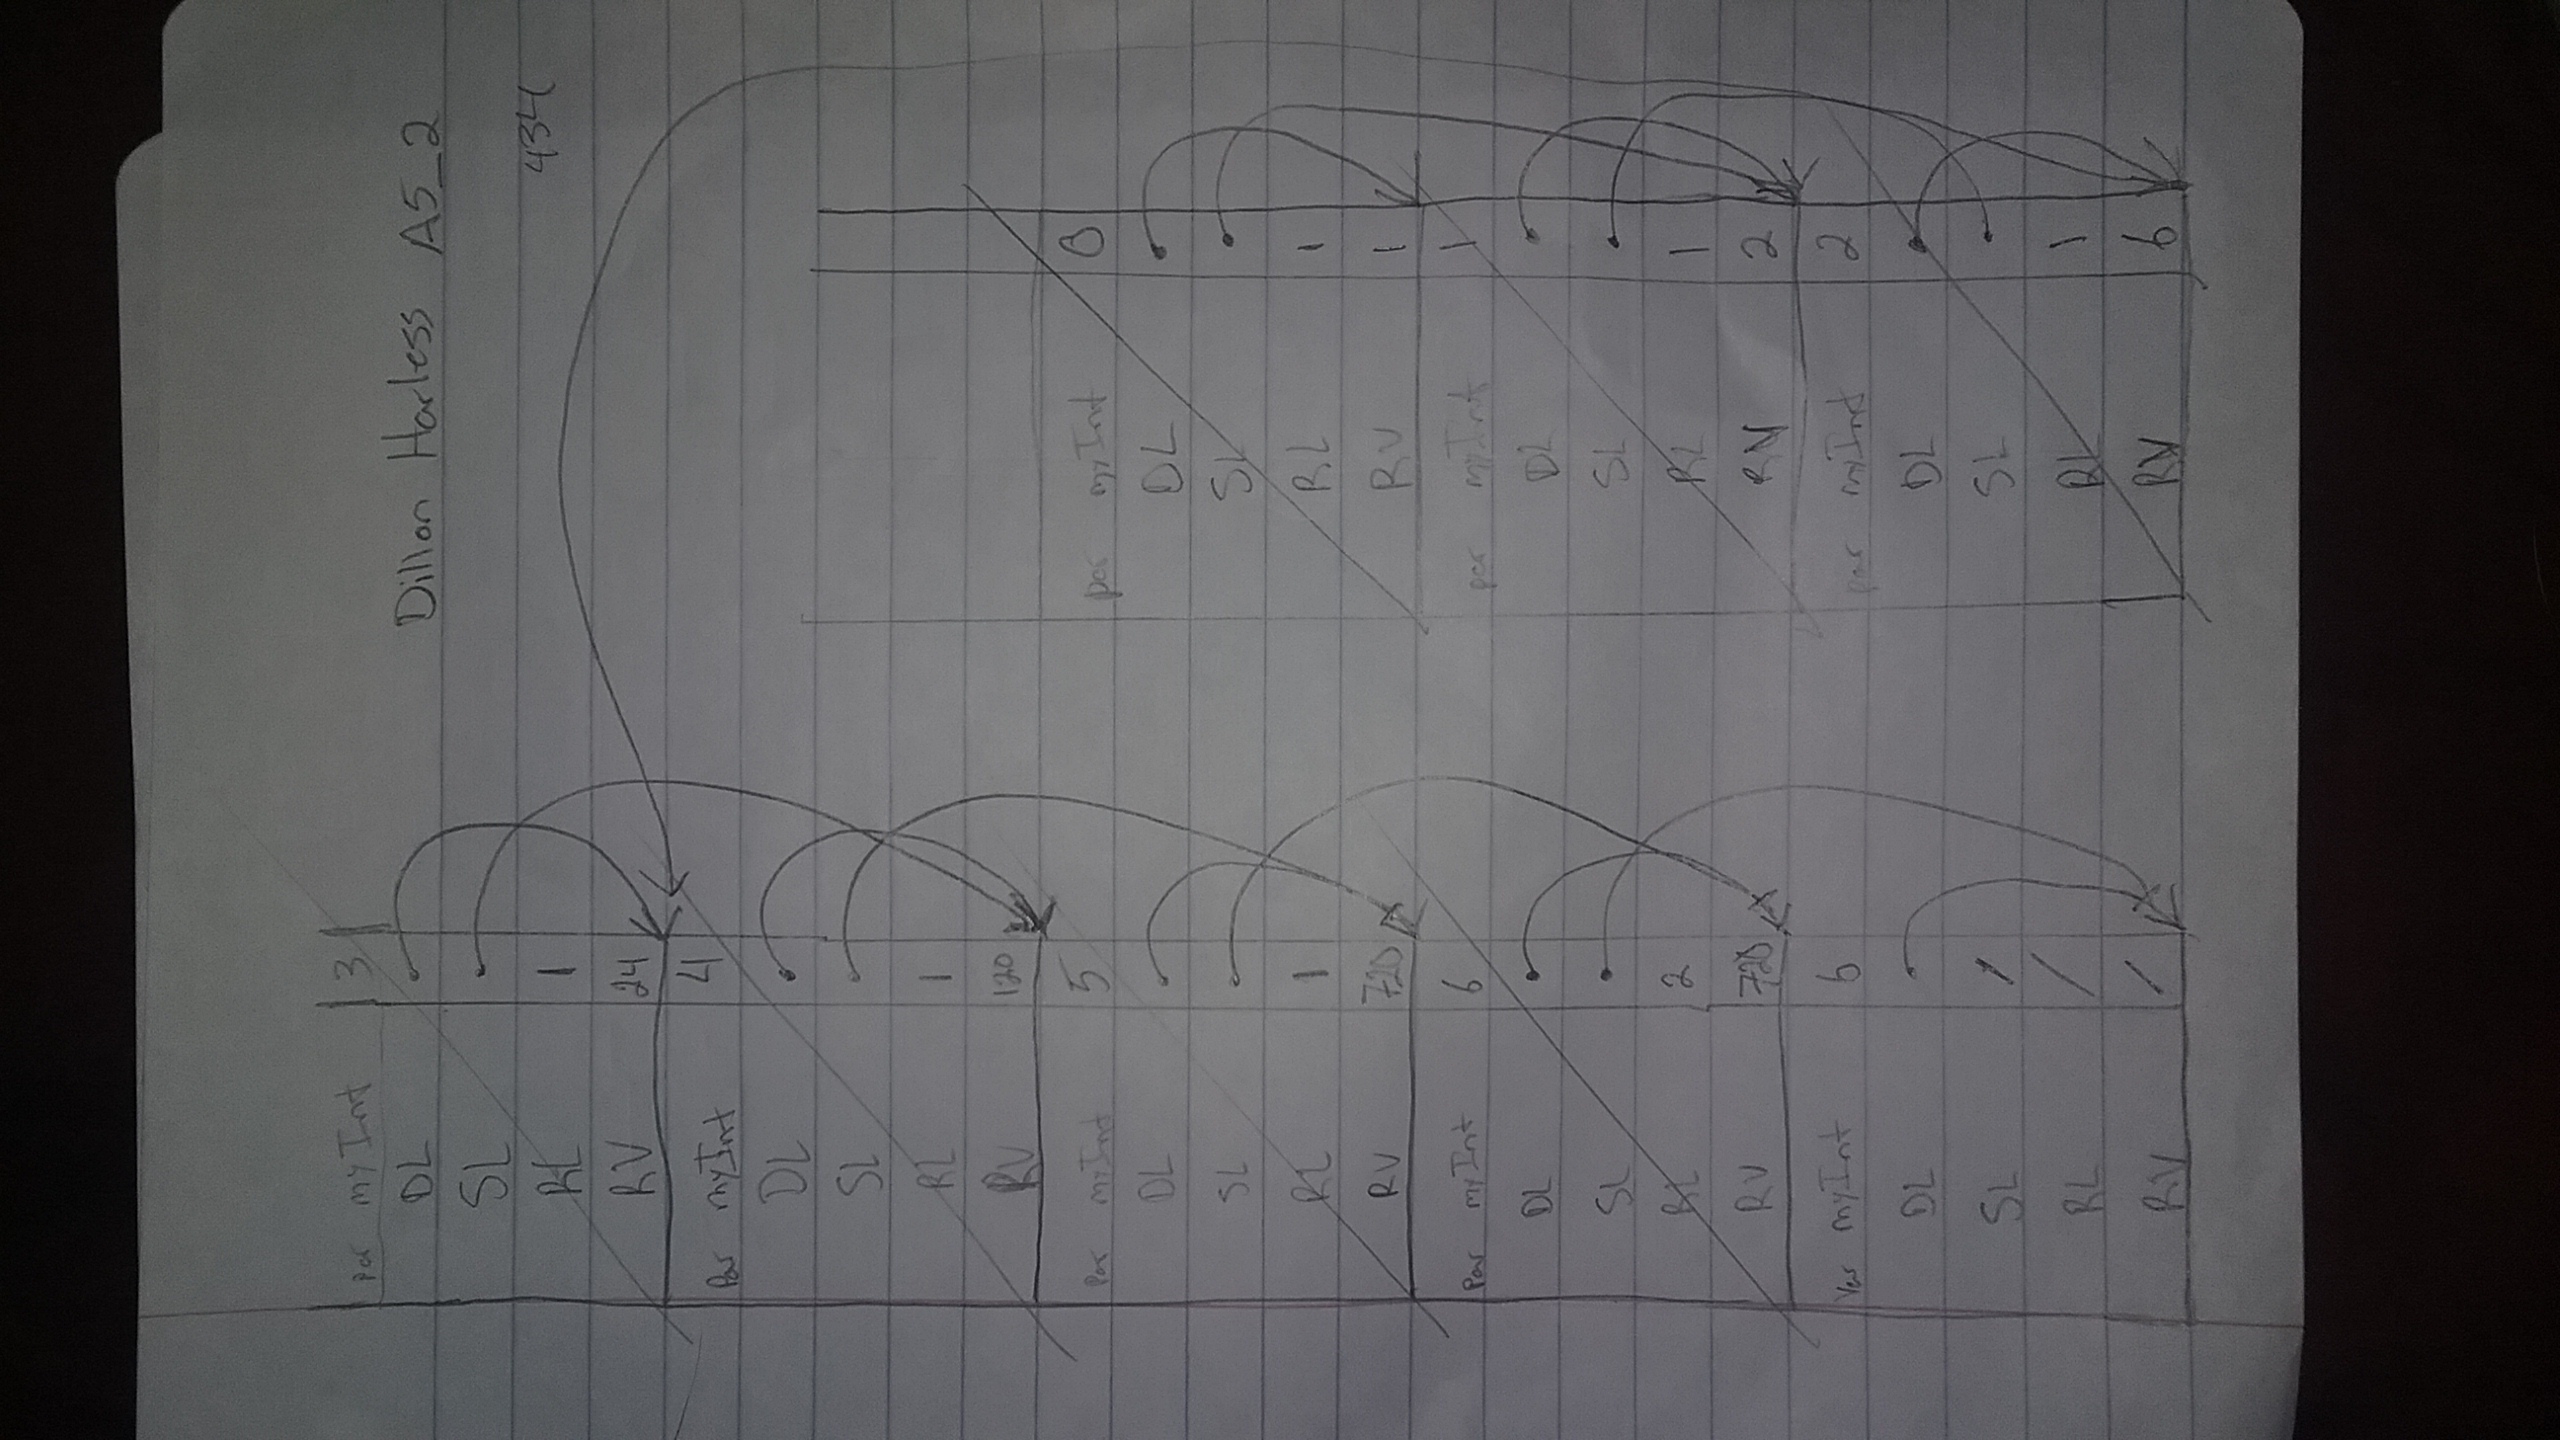 Dillon Harless A5_2
434
par myInt 3
DL
SL
RL 1
RV 24
Par myInt 4
DL
SL
RL 1
RV 120
Par myInt 5
DL
SL
RL 1
RV 720
Par myInt 6
DL
SL
RL 2
RV 720
Var myInt 6
DL
SL /
RL /
RV /
par myInt 0
DL
SL
RL 1
RV 1
par myInt 1
DL
SL
RL 1
RV 2
par myInt 2
DL
SL
RL 1
RV 6